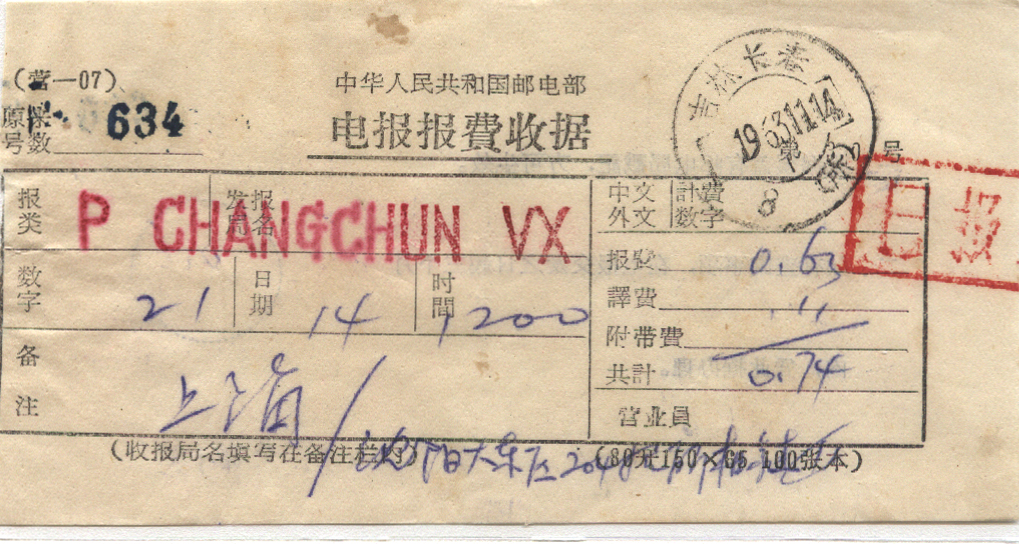 (营一07)
中华人民共和国邮电部
原来号数 634
电报报費收据
吉林长春
1963.11.14
8
第 号
报类 P
发报局名 CHANGCHUN VX
中文 計費
外文 数字
数字 21
日期 14
时間 1200
报費 0.63
譯費 .11
附带費
共計 0.74
备注 上海/
营业员
(收报局名填写在备注栏内)
(80克150×65 100张本)
沈阳大东区204